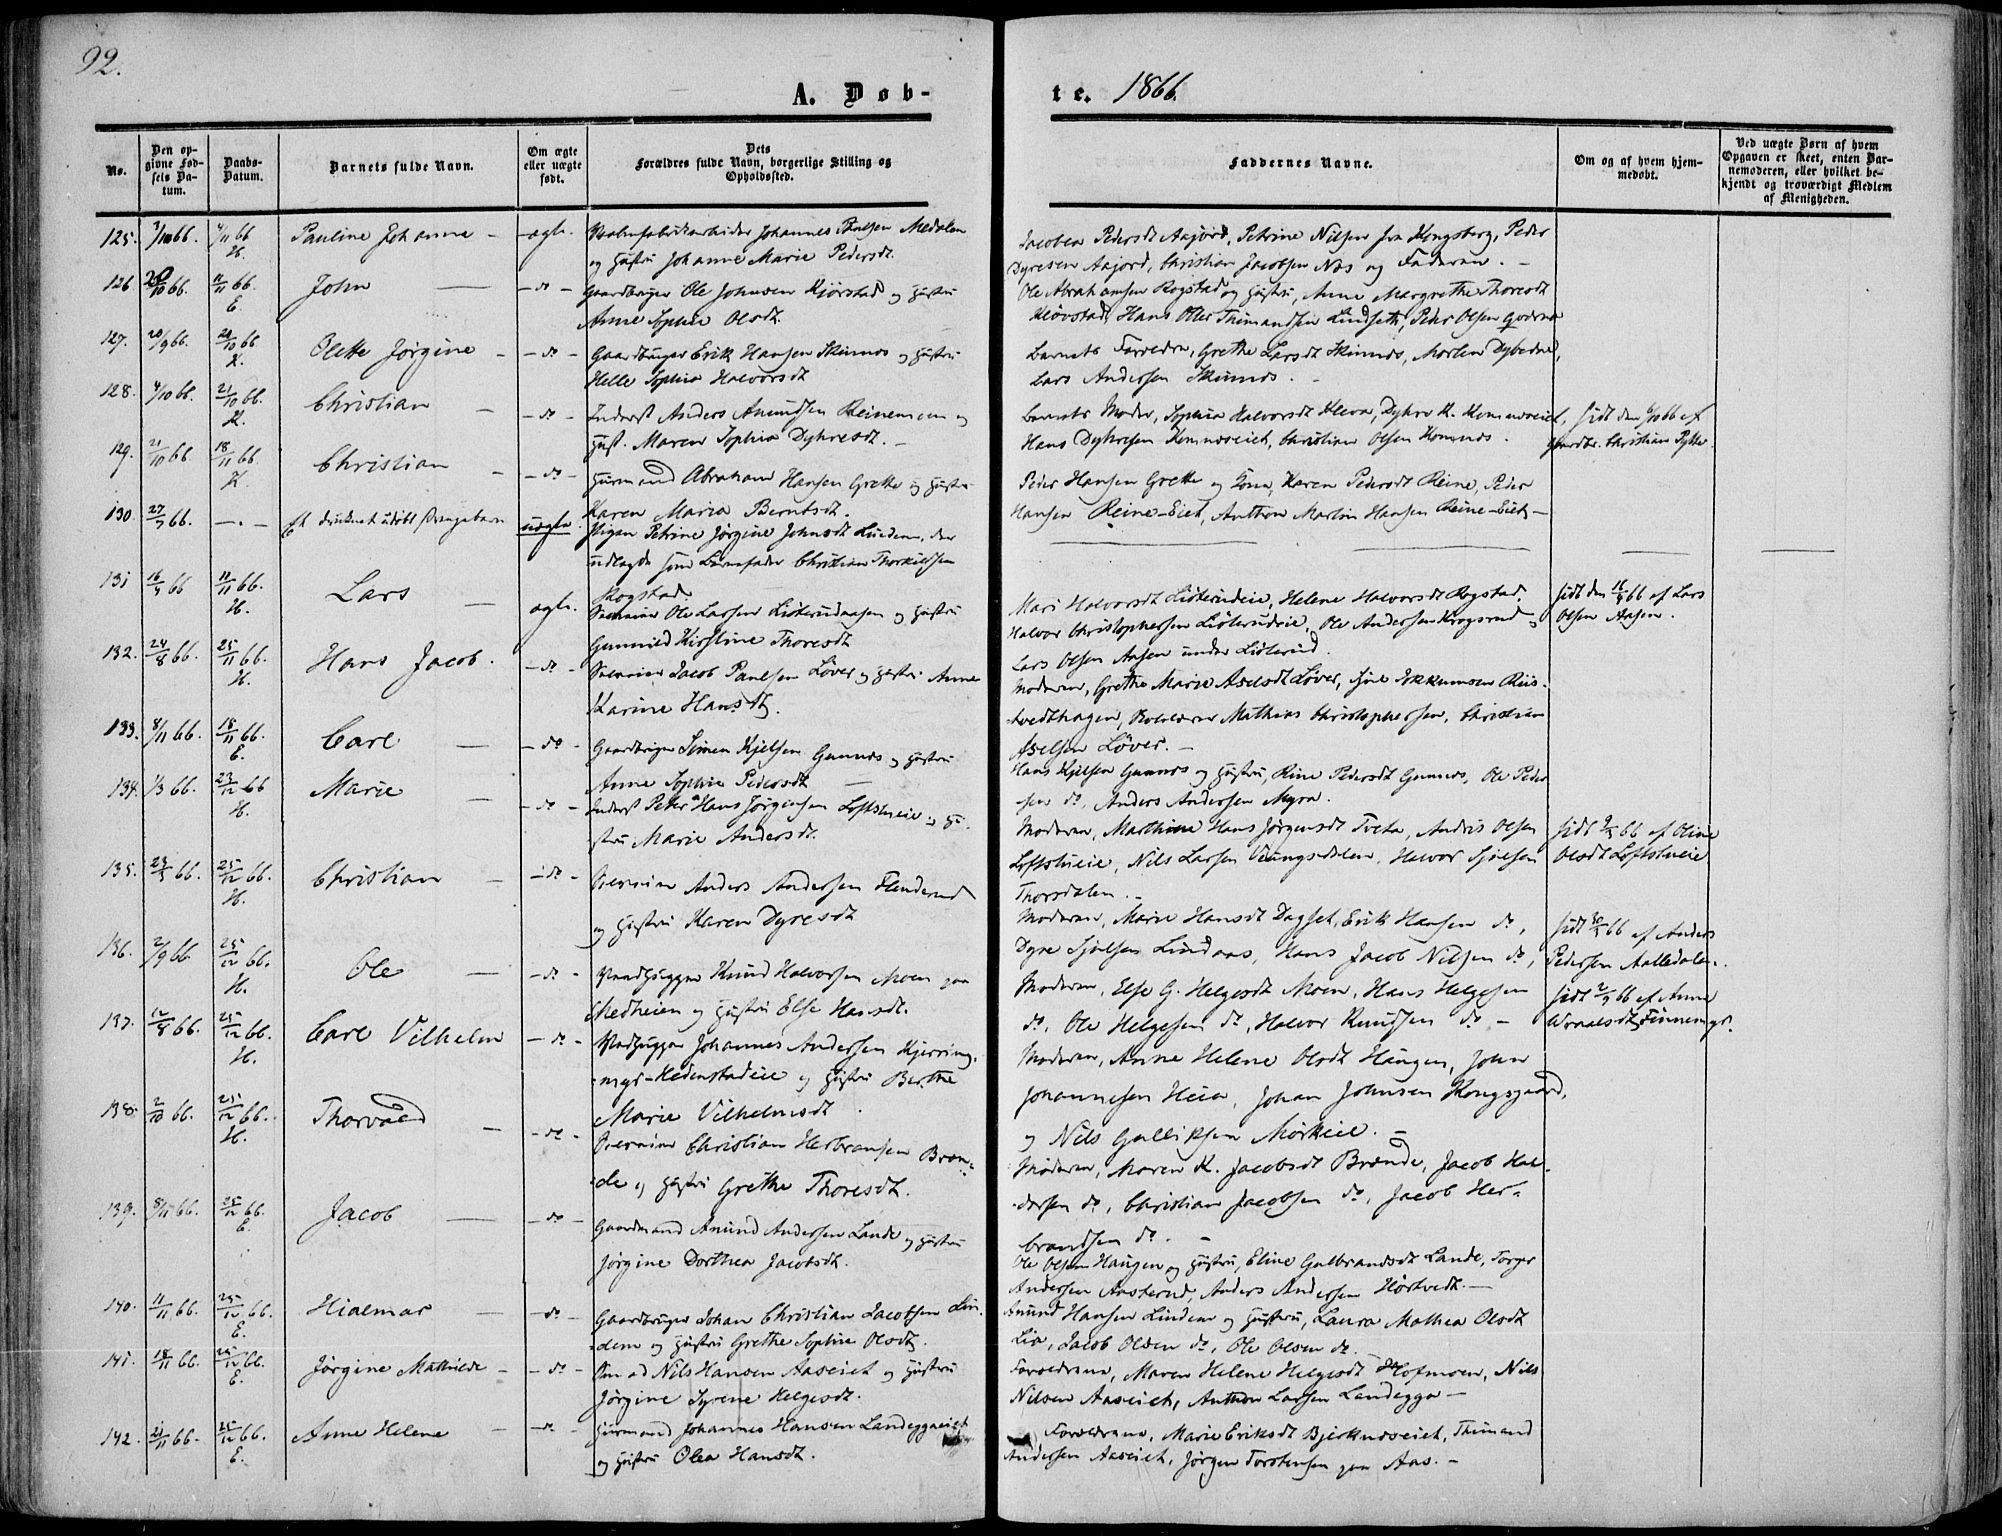 92.
A. Døb-
te. 1866.
No.
Den op-
givne Fød-
sels Da-
tum.
Daabs-
Datum.
Barnets fulde Navn.
Om ægte
eller uægte
født.
Dets
Forældres fulde Navn, borgerlige Stilling og
Opholdssted.
Faddernes Navne.
Om og af hvem hjem-
medøbt.
Ved uægte Børn af hvem
Opgaven er skeet, enten Bar-
nemoderen, eller hvilket be-
kjendt og troværdigt Medlem
af Menigheden.
125. 66. 4/11 66 H. Pauline Johanne - ægte. Johannes Paulsen Medalen
og Hustru Johanne Marie Pedersdt.
Jacobea Pedersdt Aasjord, Petrine Nilsen fra Kongsberg, Peder
Dyresen Aasjord, Christian Jacobsen Næs og Faderen. -
126 20/10 66. 11/11 66. E. John - do - Gaardbruger Ole Johnsen Kjørstad og Hustru
Anne Sophie Olsdt.
Ole Abrahamsen Rogstad og Hustru, Anne Margrethe Thoresdt
Kløvstad, Hans Olles Thimandsen Lindseth, Peder Olsen
127. 20/9 66. 28/10 66 K. Olette Jørgine - do - Gaardbruger Erik Hansen Skinnes og Hustru
Helle Sophie Halvorsdt
Barnets Forældre, Grethe Larsdt Skinnes, Morten Dybedal,
Lars Andersen Skinnes. -
128. 4/10 66. 21/10 66. K. Christian - do - Inderst Anders Amundsen Reinemoen og
Hust. Maren Sophie Dyhresdt. -
Barnets Moder, Sophie Halvorsdt Kleva, Dyhre K. Komnæseiet,
Hans Dyhresen Komnæseiet, Christian Olsen Komnæs.
hjdt den 6/10 66 af
Gaardbr. Christian Pytte.
129. 21/10 66 18/11 66. K. Christian - do - Huusmand Abraham Hansen Grette og Hustru
Karen Maria Berntsdt.
Peder Hansen Grette og Kone, Karen Pedersdt Reine, Peder
Hansen Reine-Eiet, Anthon Martin Hansen Reine-Eiet -
130 27/7 66. - . - Et dødfødt udøbt Drengebarn uægte. Pigen Petrine Jørgine Johnsdt Linden, der
udlagde som Barnefader Christian Thorkildsen
Skogstad.
131 16/4 66 11/11 66. H. Lars - ægte. Selveier Ole Larsen Listerudaasen og Hustru
Gunnild Kirstine Thoresdt
Mari Halvorsdt Listerudeie, Helene Halvorsdt Rogstad,
Halvor Christophersen Listerudeie, Ole Andersen Krogsrud og
Lars Olsen Aasen under Listerud.
hjdt den 16/4 66 af Lars
Olsen Aasen.
132. 24/8 66. 25/11 66. H. Hans Jacob. - do - Selveier Jacob Paulsen Løver og Hustru Anne
Karine Hansdt.
Moderen, Grethe Marie Axelsdt Løver,
tvedthagen, Mathias Christophersen, Christian
Axelsen Løver. -
133. 8/11 66. 18/11 66. E. Carl - do - Gaardbruger Simen Kjelsen Gunnes og Hustru
Anne Sophie Pedersdt
Hans Kjelsen Gunnes og Hustru, Rine Pedersdt Gunnes, Ole Peder
sen do, Anders Andersen Myra.
134. 1/3 66. 23/12 66 H. Marie - do - Inderst Peter Hans Jørgensen Loftstueie og Hu-
stru Marie Andersdt.
Moderen, Marthine Hans Jørgensdt Tveta, Andris Olsen
Loftstueie, Nils Larsen Vaangsdalen, Halvor Sjølsen
Thorsdalen. -
66 af Oline
Olsdt Loftstueie
135. 66. 25/12 66. H. Christian - do - Selveier Anders Andersen Flenderud
og Hustru Karen Dyresdt
Moderen, Marie Hansdt Dagset, Erik Hansen do,
Dyre Sjølsen Lindaas, Hans Jacob Nilsen do,
66 af Anders
Pedersen Aalledalen.
136. 2/9 66 25/12 66. H. Ole - do - Vedhugger Knud Halvorsen Moen paa
Medheien og Hustru Else Hansdt.
Moderen, Else G. Helgesdt Moen, Hans Helgesen
do, Ole Helgesen do, Halvor Knudsen do -
hjdt 2/9 66 af Anne
137. 12/8 66. 25/12 66. H. Carl Vilhelm - do - Vedhugger Johannes Andersen Kjerring-
myr-Hedenstadeie og Hustru Berthe
Marie Vilhelmsdt.
Moderen, Anne Helene Olsdt Haugen, John
Johannesen Heia, Johan Johnsen Kongsgaard,
og Nils Gulliksen Mørkeie. -
138. 2/10 66. 25/12 66. H. Thorvald - do - Selveier Christian Herbransen Bræn-
de og Hustru Grethe Thoresdt.
Moderen, Maren K. Jacobsdt Brænde, Jacob Hal-
dorsen do, Christian Jacobsen do, Jacob Her-
brandsen do. -
139. 8/11 66. 25/12 66. E. Jacob - do - Gaardmand Amund Andersen Lande og Hustru
Jørgine Dorthea Jacobsdt.
Ole Olsen Haugen og Hustru, Eline Gulbrandsdt Lande, Torger
Andersen Aasterud, Anders Andersen Hørtvedt. -
140. 11/11 66. 25/12 66. E. Hialmar - do - Gaardbruger Johan Christian Jacobsen Lin-
dem og Hustru Grethe Sophie Olsdt.
Amund Hansen Lindem og Hustru, Laura Mathea Olsdt
Lia, Jacob Olsen do, Ole Olsen do.
141. 18/11 66. 25/12 66. E. Jørgine Mathilde - do - Nils Hansen Aaseiet og Hustru
Jørgine Syrene Helgesdt.
Forældrene, Maren Helene Helgesdt Hofmoen, Nils
Nilsen Aaseiet, Anthon Larsen Landegga -
142. 21/11 66. 25/12 66. E. Anne Helene - do - Huusmand Johannes Hansen Landeggaeiet
og Hustru Olea Hansdt.
Forældrene, Marie Eriksdt Bjerknæseiet, Thimand
Andersen Aaseiet, Jørgen Torstensen paa Aas. -